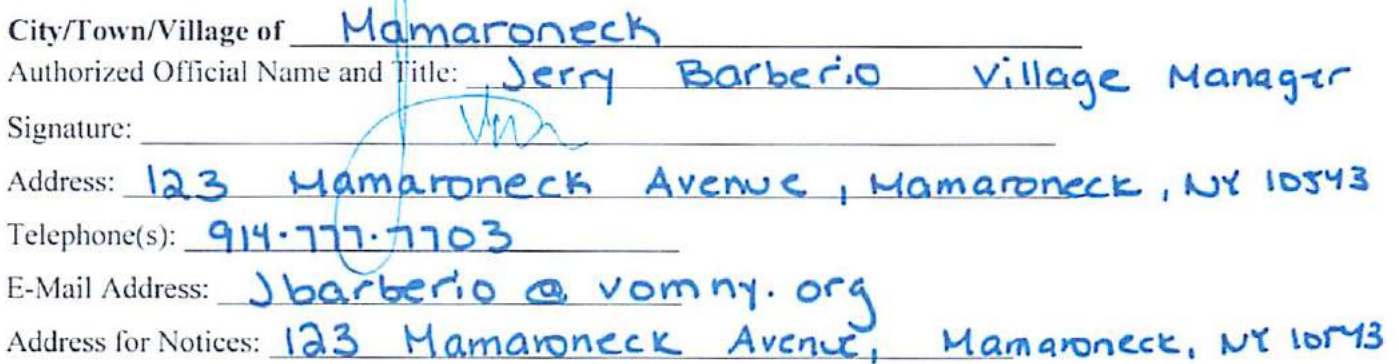 City/Town/Village of Mamaroneck
Authorized Official Name and Title: Jerry Barberio Village Manager
Signature:
Address: 123 Mamaroneck Avenue, Mamaroneck, NY 10543
Telephone(s): 914.777.7703
E-Mail Address: Jbarberio @ vomny.org
Address for Notices: 123 Mamaroneck Avenue, Mamaroneck, NY 10543